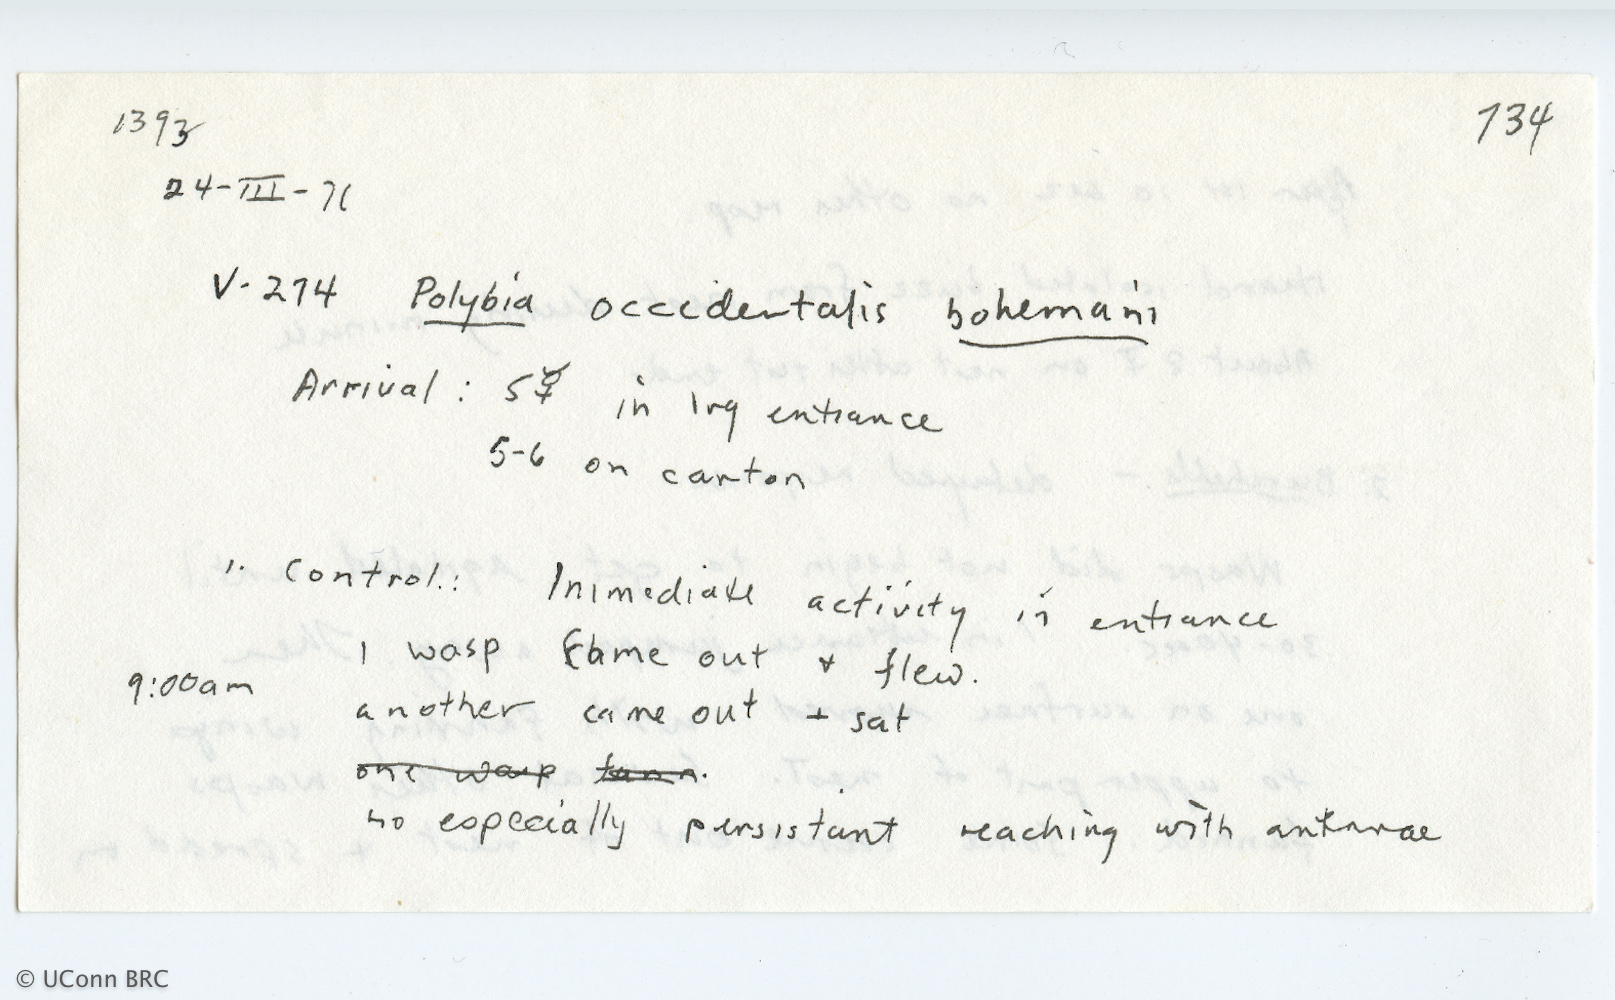 1393
734
24-III-71
V-274 Polybia occidentalis bohemani
Arrival : 5 ☿ in lrg entrance
5-6 on carton
1. Control.: Immediate activity in entrance
1 wasp came out + flew.
9:00am
another came out + sat
one wasp
no especially persistant reaching with antennae
© UConn BRC